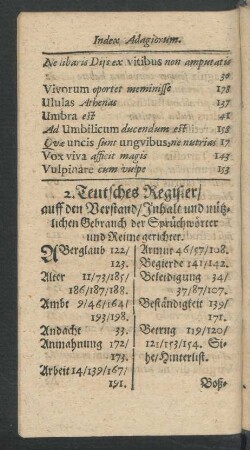 Index Adagiorum.
Ne libaris Dijs ex vitibus non amputatis
30
Vivorum oportet meminisse 178
Ululas Athenas 137
Umbra est 41
Ad Umbilicum ducendum est 158
Qvæ uncis sunt ungvibus, ne nutrias 17
Vox viva afficit magis 143
Vulpinare cum vulpe 153
2. Teutsches Register/
auff den Verstand/Inhalt und nütz-
lichen Gebrauch der Sprüchwörter
und Reime gerichtet.
ABerglaub 122/
123.
Alter 11/73/185/
186/187/188.
Ambt 9/46/164/
193/198.
Andacht 33.
Anmahnung 172/
173.
Arbeit 14/139/167/
191.
Armut 46/57/108.
Begierde 141/142.
Beleidigung 34/
37/87/107.
Beständigkeit 139/
171.
Betrug 119/120/
121/153/154. Si-
he/Hinterlist.
Boß-